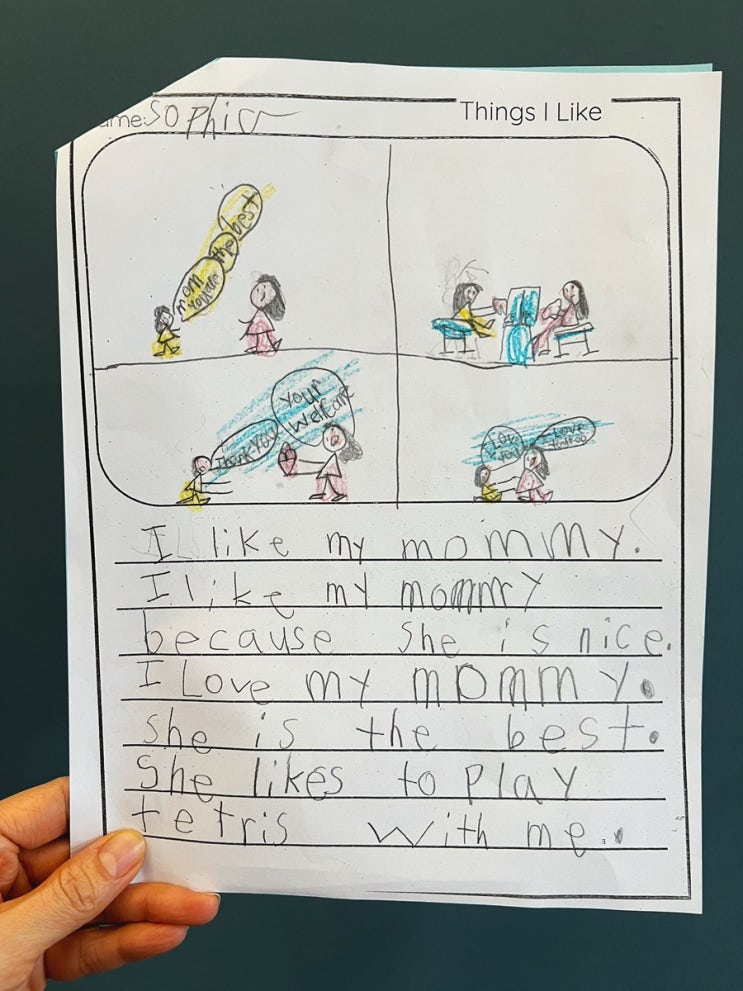 ame: Sophia
Things I Like
mom
you are
the
best
Thank you
Your
Welcome
I Love
you
I Love
you too
I like my mommy.
I like my mommy
because she is nice.
I Love my mommy.
she is the best.
She likes to play
tetris with me.